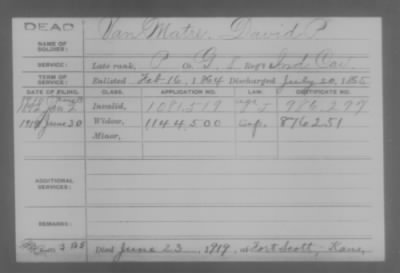 DEAD
NAME OF SOLDIER: Van Matre, David P.
SERVICE: Late rank, P Co. G, Reg't Ind Cav.
TERM OF SERVICE: Enlisted Feb 16, 1864 Discharged July 20, 1865
DATE OF FILING. CLASS. APPLICATION NO. LAW. CERTIFICATE NO.
1892 Jan 2 Invalid, 1081,519 986,297
1919 June 30 Widow, 1144500 876251
Minor,
ADDITIONAL SERVICES:
REMARKS:
Died June 23, 1919, at Fort Scott, Kans.